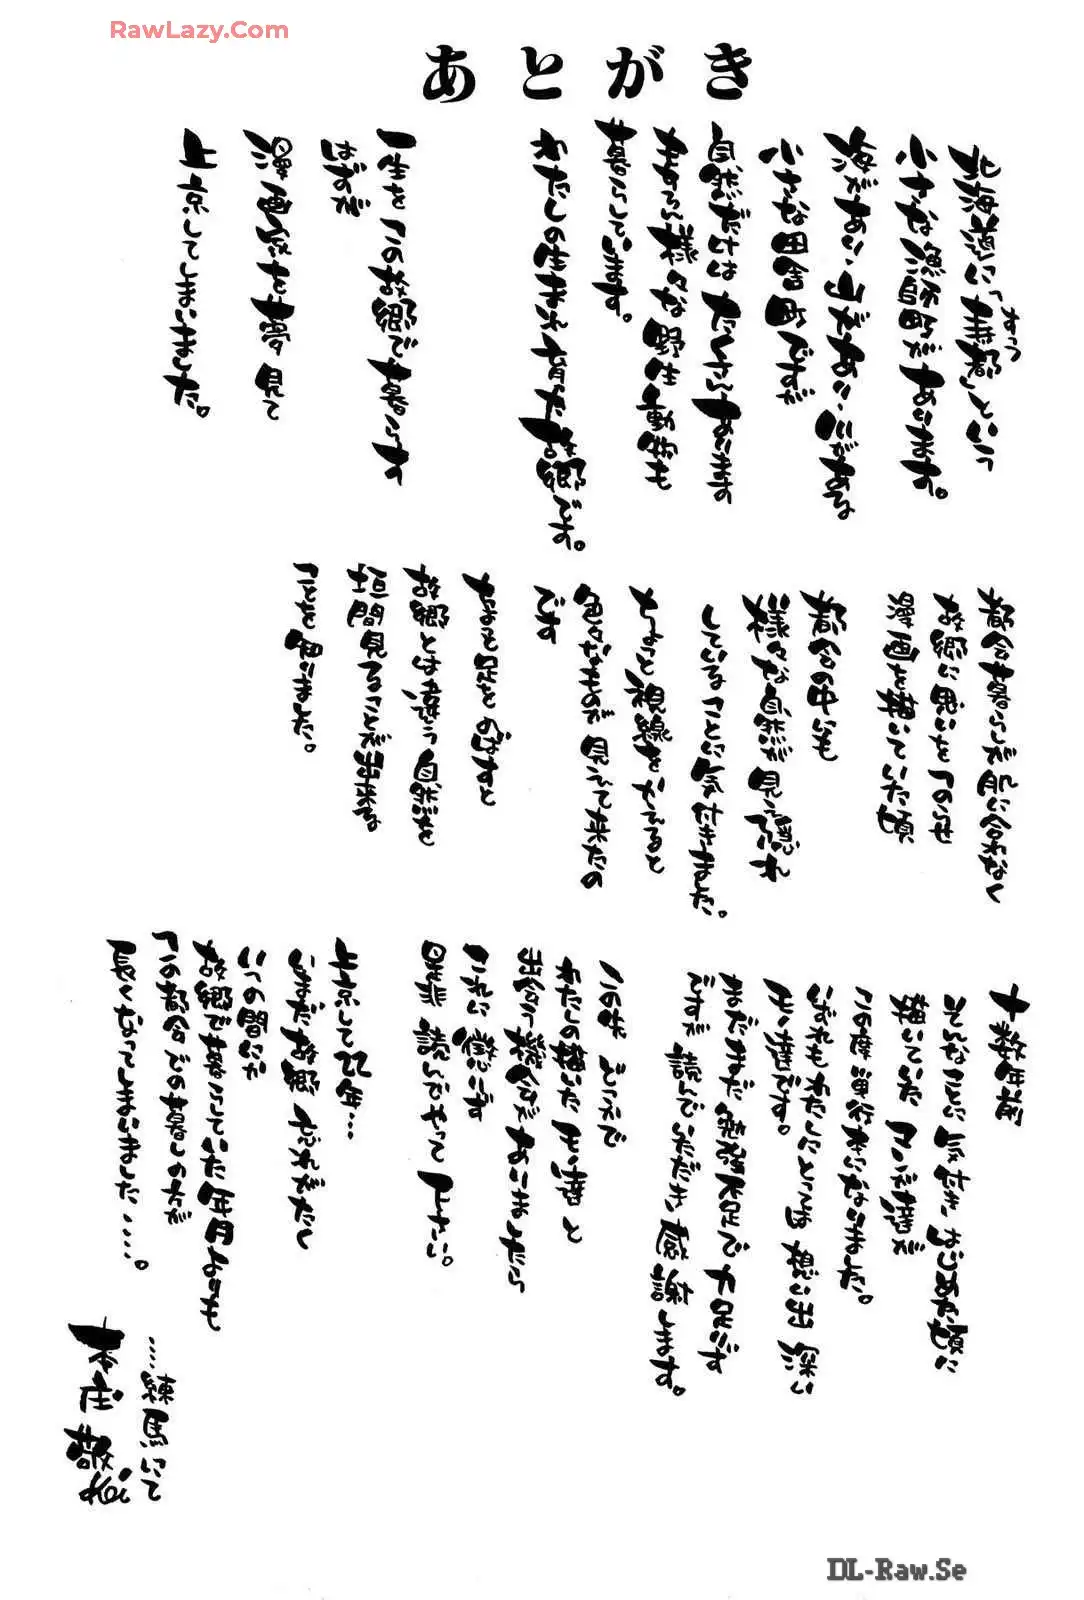 RawLazy.Com
あとがき
北海道に「寿都」という
すっつ
小さな漁師町があります。
海があり、山があり、川がある
小さな田舎町ですが
自然だけはたくさんあります
もちろん様々な野生動物も
暮らしています。
わたしの生まれ育った故郷です。
一生をこの故郷で暮らす
はずが
漫画家を夢見て
上京してしまいました。
都会暮らしが肌に合わなく
故郷に思いをつのらせ
漫画を描いていた頃
都会の中にも
様々な自然が見え隠れ
していることに気付きました。
ちょっと視線をかえると
色々なものが見えて来たの
です
もっと足をのばすと
故郷とは違う自然を
垣間見ることが出来る
ことを知りました。
十数年前
そんなことに気付きはじめた頃に
描いていたマンガ達が
この度単行本になりました。
いずれもわたしにとっては想い出深い
子達です。
まだまだ勉強不足で力足らず
ですが読んでいただき感謝します。
この先どこかで
わたしの描いた子達と
出会う機会がありましたら
これに懲りず
是非読んでやって下さい。
上京して22年…
いまだ故郷忘れがたく
いつの間にか
故郷で暮らしていた年月よりも
この都会での暮しの方が
長くなってしまいました….
….練馬にて
本庄 敬
Kei
DL-Raw.Se